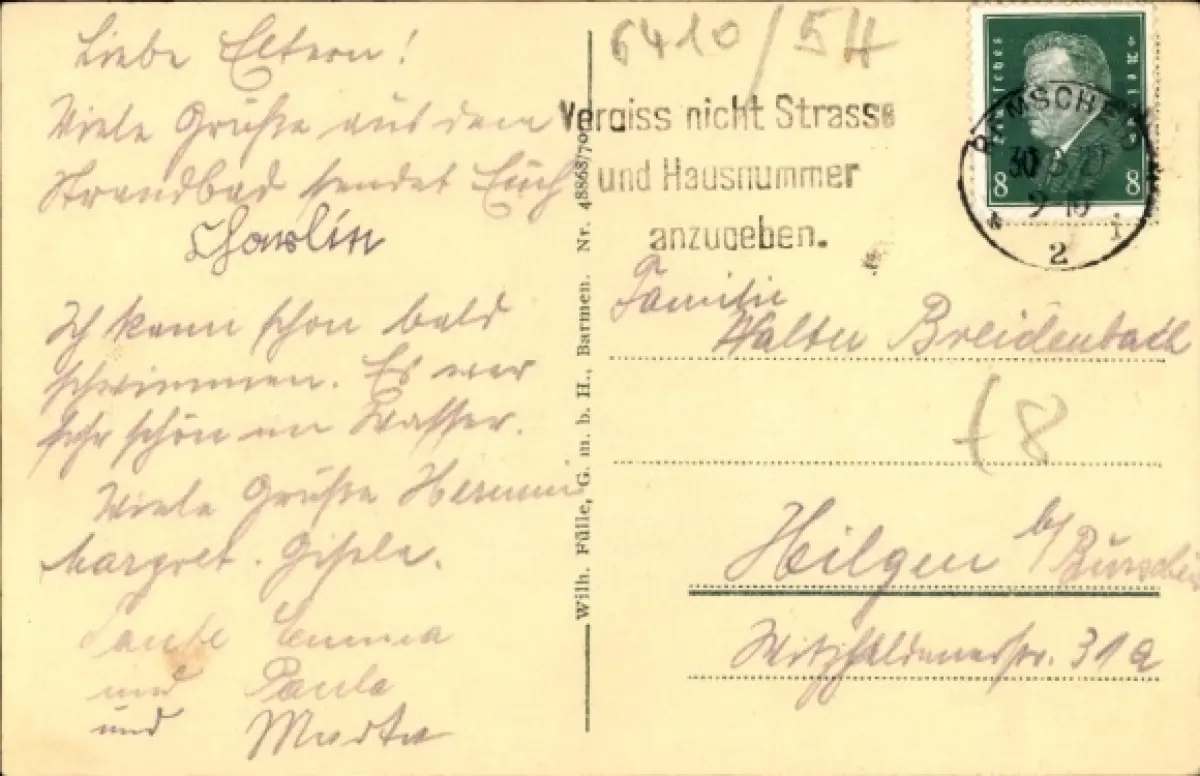 Liebe Eltern!
Viele Grüße aus dem
Strandbad sendet Euch
Ich kann schon bald
schwimmen. Es war
sehr schön im Wasser.
Viele Grüße Hermann
Margret. Gisela.
Tante Emma
und Paula
und Marta
Wilh. Fülle, G. m. b. H., Barmen. Nr. 48868/70
6410/54
Vergiss nicht Strasse
und Hausnummer
anzugeben.
Deutsches Reich
8 8
REMSCHEID
2
Familie
Walter Breidenbach
Hilgen b/ Burscheid
Witzheldenerstr. 31a